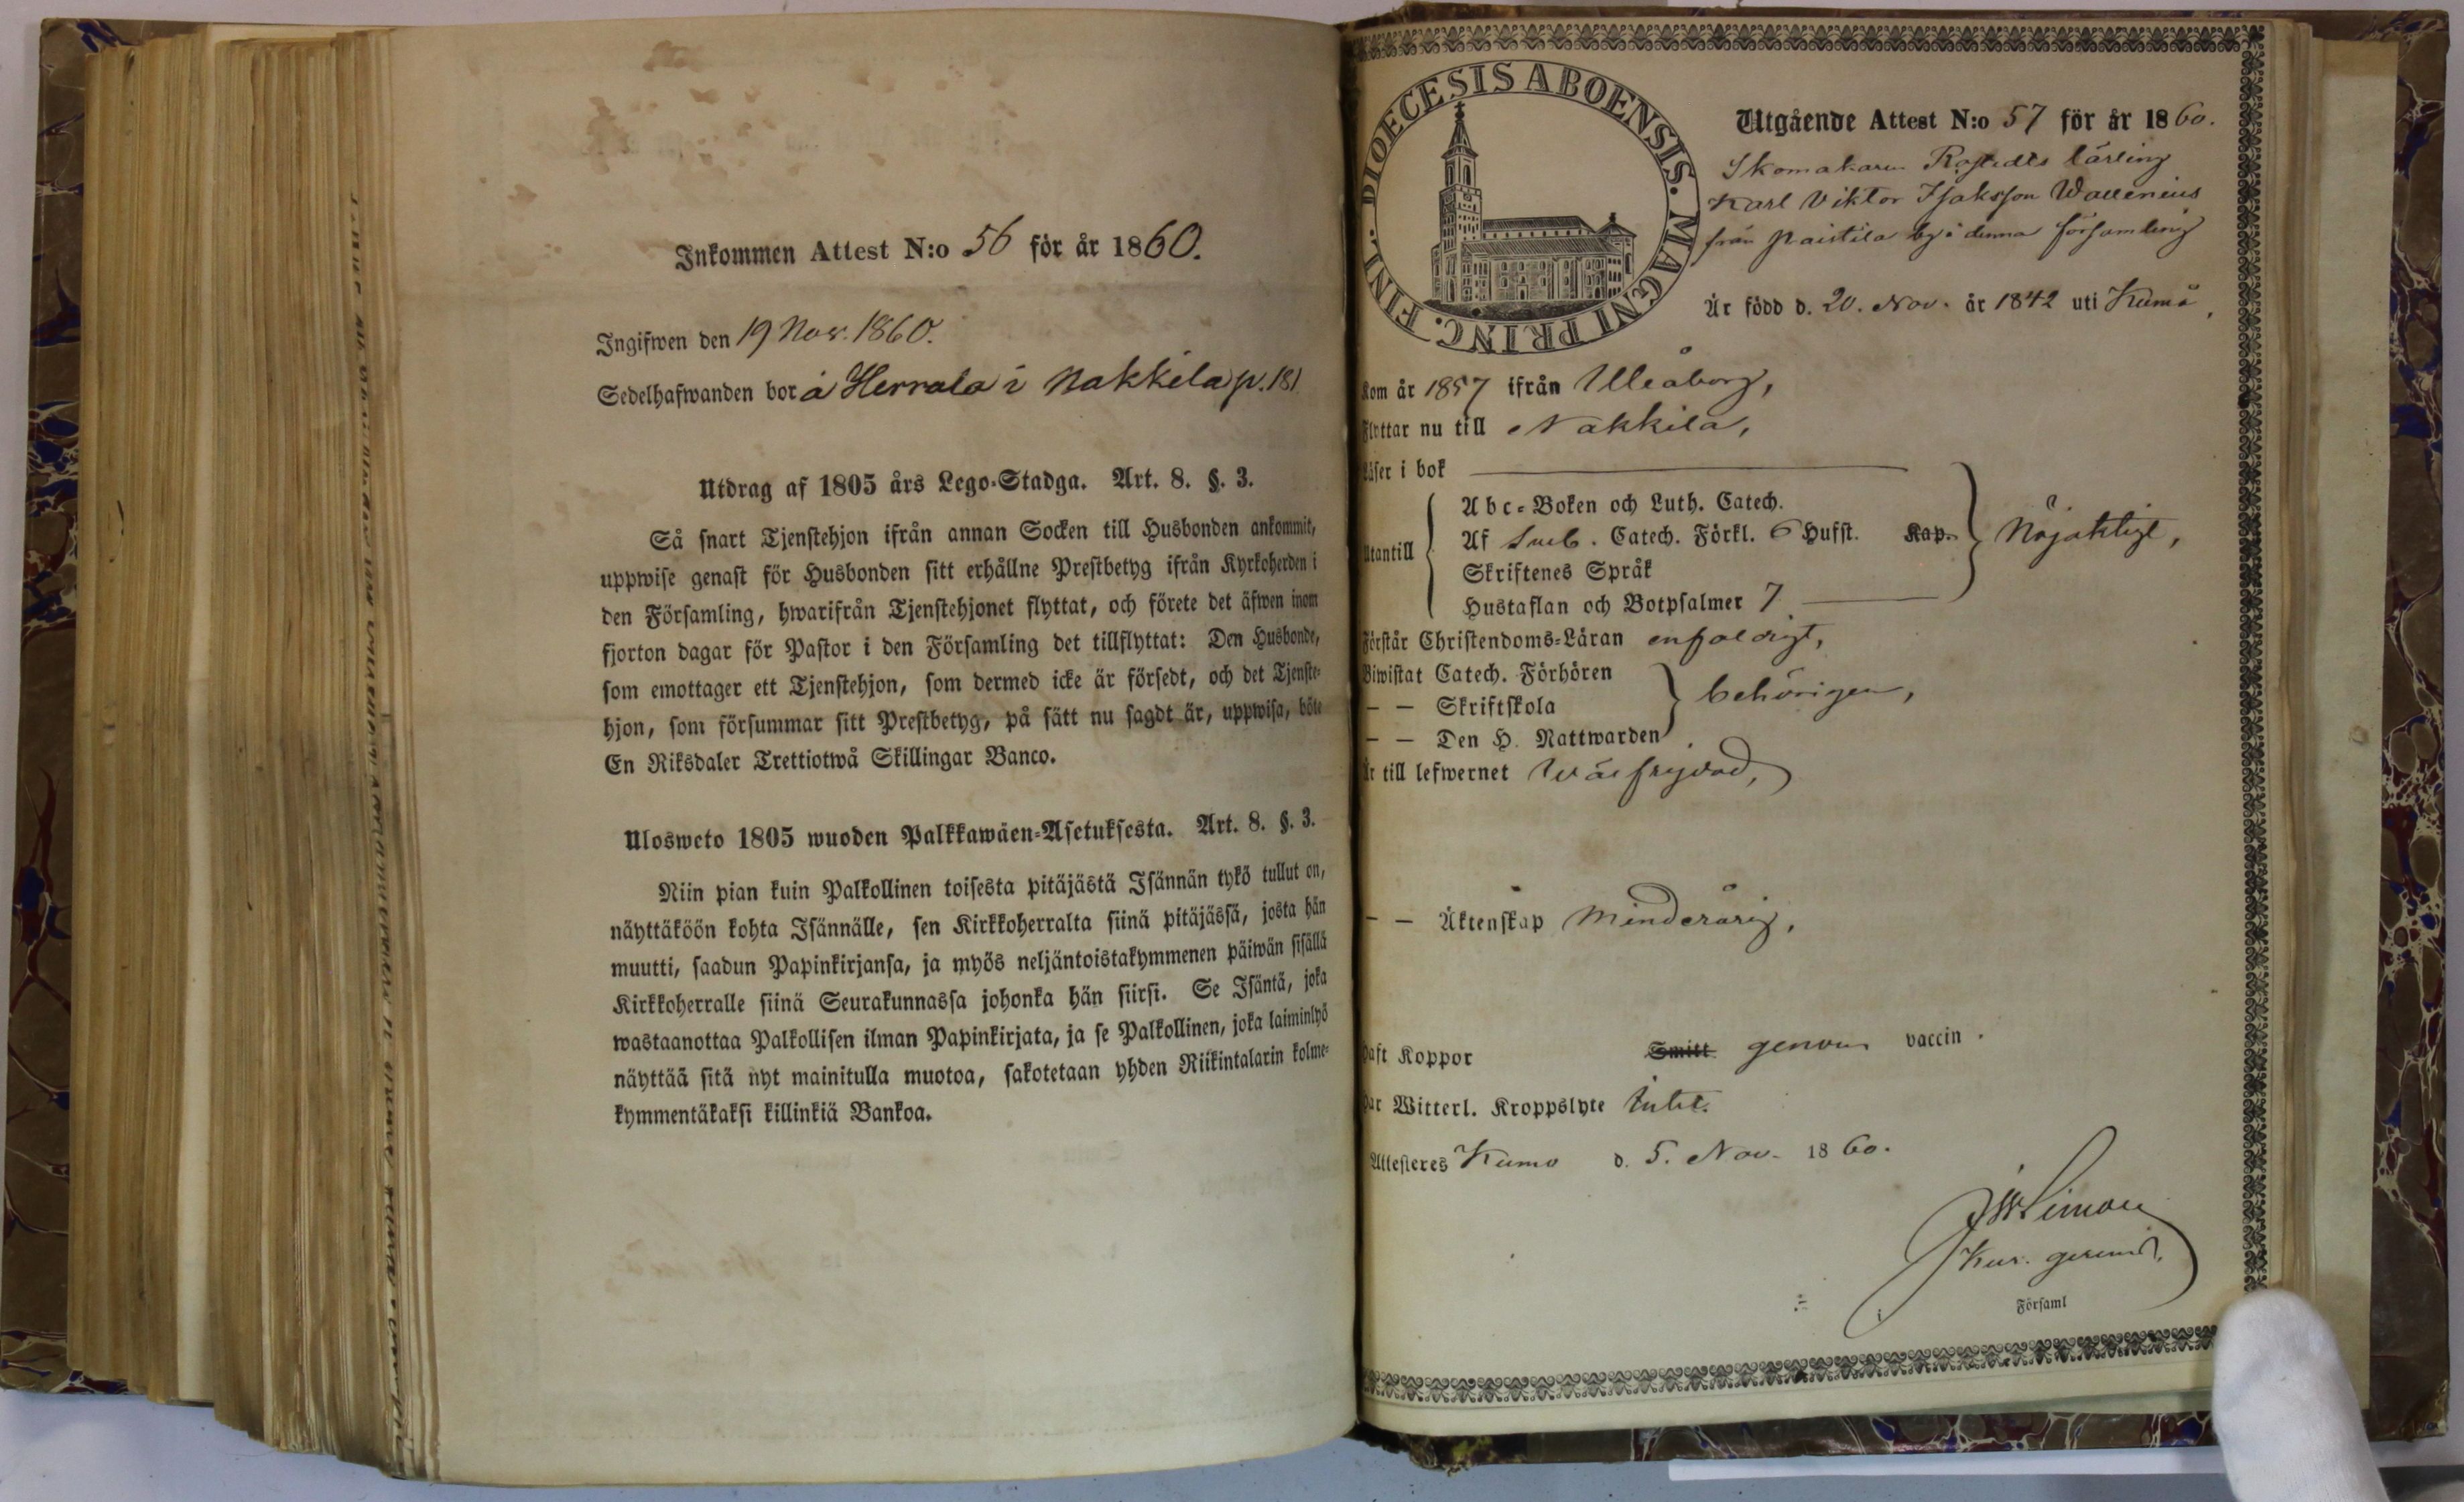 Inkommen Attest N:o 56 för år 1860.
Ingifwen den 19 Nov. 1860.
Sedelhafwanden bor å Herrala i Nakkila p. 181
Utdrag af 1805 års Lego-Stadga. Art. 8. §. 3.
Så snart Tjenstehjon ifrån annan Socken till Husbonden ankommit,
uppwise genast för Husbonden sitt erhållne Prestbetyg ifrån Kyrkoherden i
den Församling, hwarifrån Tjenstehjonet flyttat, och förete det äfwen inom
fjorton dagar för Pastor i den Församling det tillflyttat: Den Husbonde,
som emottager ett Tjenstehjon, som dermed icke är försedt, och det Tjenste-
hjon, som försummar sitt Prestbetyg, på sätt nu sagdt är, uppwisa, böte
En Riksdaler Trettiotwå Skillingar Banco.
Ulosweto 1805 wuoden Palkkawäen-Asetuksesta. Art. 8. §. 3.
Niin pian kuin Palkollinen toisesta pitäjästä Isännän tykö tullut on,
näyttäköön kohta Isännälle, sen Kirkkoherralta siinä pitäjässä, josta hän
muutti, saadun Papinkirjansa, ja myös neljäntoistakymmenen päiwän sisällä
Kirkkoherralle siinä Seurakunnassa johonka hän siirsi. Se Isäntä, joka
wastaanottaa Palkollisen ilman Papinkirjata, ja se Palkollinen, joka laiminlyö
näyttää sitä nyt mainitulla muotoa, sakotetaan yhden Riikintalarin kolme-
kymmentäkaksi killinkiä Bankoa.
DIOECESIS ABOENSIS. MAGNI PRINC. FINL.
Utgående Attest N:o 57 för år 1860.
Skomakaren Rostedts lärling
Karl Viktor Isaksson Wallenius
från Paistila by i denna församling
Är född d. 20. Nov. år 1842 uti Kumo,
Kom år 1857 ifrån Uleåborg,
Flyttar nu till Nakkila,
Läser i bok
Abc-Boken och Luth. Catech.
Utantill Af Sveb. Catech. Förkl. 6 Hufst. Kap. Nöjaktigt,
Skriftenes Språk
Hustaflan och Botpsalmer 7
Förstår Christendoms-Läran enfaldigt,
Biwistat Catech. Förhören
— — Skriftskola behörigen,
— — Den H. Nattwarden
Är till lefwernet Wälfrejdad,
— — Äktenskap Minderårig,
Haft Koppor Smitt genom vaccin.
Har Witterl. Kroppslyte Intet.
Attesteres Kumo d. 5. Nov. 1860.
Församl